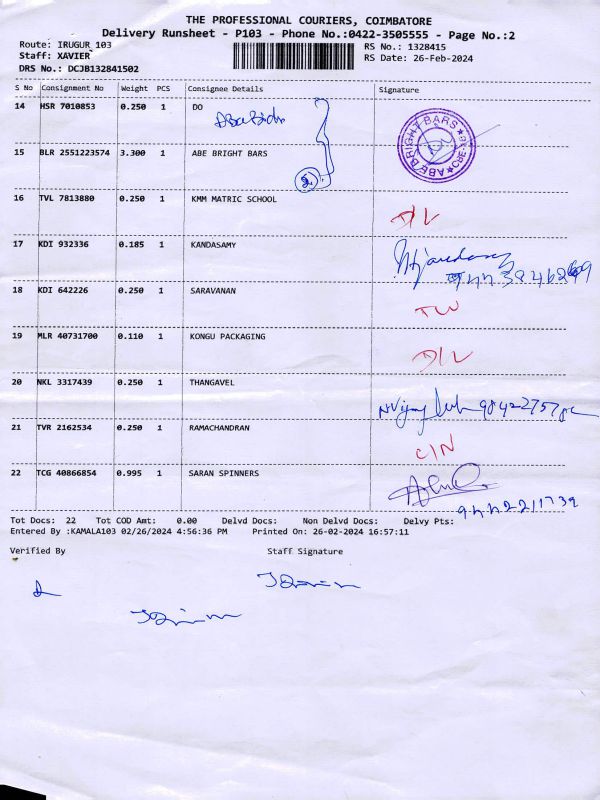 THE PROFESSIONAL COURIERS, COIMBATORE
Delivery Runsheet - P103 - Phone No.:0422-3505555 - Page No.:2
Route: IRUGUR 103 RS No.: 1328415
Staff: XAVIER RS Date: 26-Feb-2024
DRS No.: DCJB132841502
S No Consignment No Weight PCS Consignee Details Signature
14 HSR 7010853 0.250 1 DO
15 BLR 2551223574 3.300 1 ABE BRIGHT BARS
ABE BRIGHT BARS
16 TVL 7813880 0.250 1 KMM MATRIC SCHOOL
D/L
17 KDI 932336 0.185 1 KANDASAMY
18 KDI 642226 0.250 1 SARAVANAN
19 MLR 40731700 0.110 1 KONGU PACKAGING
D/L
20 NKL 3317439 0.250 1 THANGAVEL
21 TVR 2162534 0.250 1 RAMACHANDRAN
C/N
22 TCG 40866854 0.995 1 SARAN SPINNERS
Tot Docs: 22 Tot COD Amt: 0.00 Delvd Docs: Non Delvd Docs: Delvy Pts:
Entered By :KAMALA103 02/26/2024 4:56:36 PM Printed On: 26-02-2024 16:57:11
Verified By Staff Signature